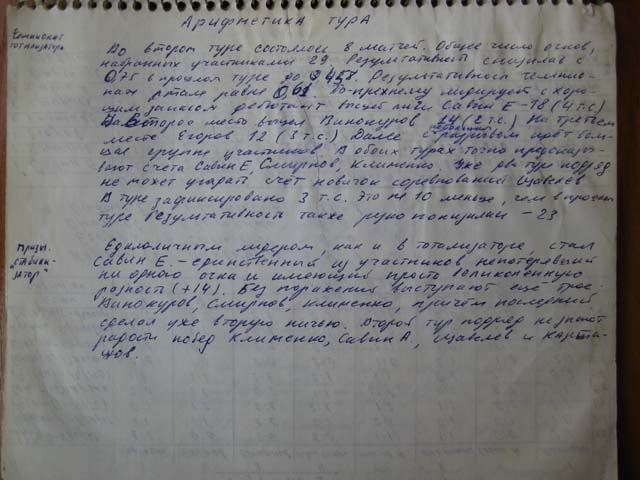 Арифметика тура
Чемпионат
тотализатора
Во втором туре состоялось 8 матчей. Общее число очков,
набранных участниками 29. Результативность снизилась с
0,75 в прошлом туре до 0,457. Результативность чемпио-
ната равна 0,61. По-прежнему лидирует с хоро-
шим запасом дебютант Савин Е - 18 (4 т.с.)
На второе место вышел Винокуров 14 (2 т.с.) На третьем
месте Егоров 12 (3 т.с.) Далее с разрывом идёт боль-
шая группа участников. В обоих турах точно предугады-
вают счета Савин Е, Смирнов, Клименко. Уже два тура подряд
не может угадать счёт новичок соревнований Щавелёв
В туре зафиксировано 3 т.с. Это на 10 меньше, чем в прошлом
туре Результативность также резко понизилась - 23
Призы.
"стабили-
затор"
Единоличным лидером, как и в тотализаторе, стал
Савин Е. - единственный из участников непотерявший
ни одного очка и имеющий просто великолепную
разность (+14). Без поражений выступают ещё трое:
Винокуров, Смирнов, Клименко, причём последний
сделал уже вторую ничью. Второй тур подряд не знают
радости побед Клименко, Савин А, Щавелёв и